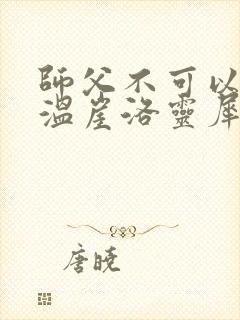 師父不可以
溫崖洛靈犀
唐曉